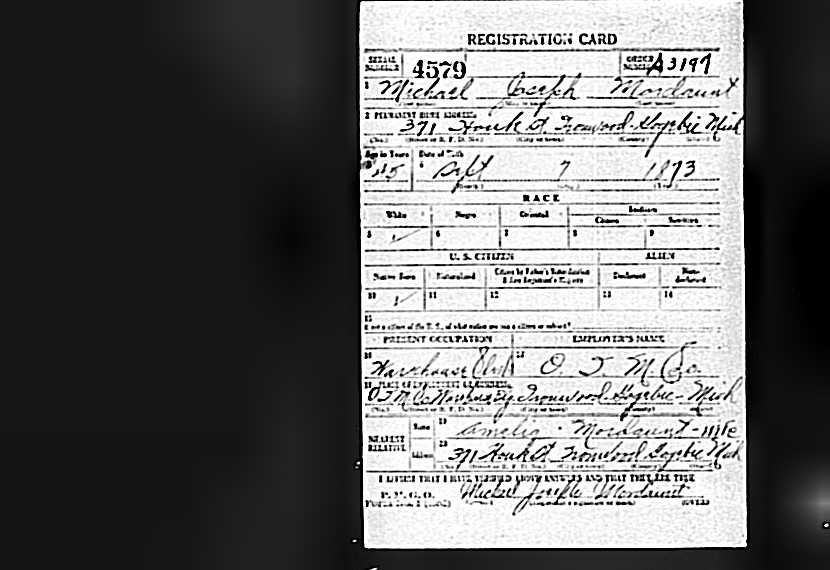 REGISTRATION CARD
SERIAL NUMBER 4579 ORDER NUMBER A3197
1 Michael Joseph Mordaunt
2 PERMANENT HOME ADDRESS:
371 Houk St Ironwood Gogebic Mich
(No.) (Street or R. F. D. No.) (City or town) (County) (State)
Age in Years Date of Birth
45 Sept 7 1873
(Month.) (Day.) (Year.)
RACE
White Negro Oriental Indian
Citizen Noncitizen
5 ✓ 6 7 8 9
U. S. CITIZEN ALIEN
Native Born Naturalized Citizen by Father's Naturalization Declarant Non-declarant
10 ✓ 11 12 13 14
15
If not a citizen of the U. S., of what nation are you a citizen or subject?
PRESENT OCCUPATION EMPLOYER'S NAME
16 Warehouse O. I. M. Co.
18 PLACE OF EMPLOYMENT OR BUSINESS:
Ironwood Gogebic Mich
(No.) (Street or R. F. D. No.) (City or town) (County) (State)
NEAREST RELATIVE
Name 19 Amelia Mordaunt - wife
Address 20 371 Houk St Ironwood Gogebic Mich
I AFFIRM THAT I HAVE VERIFIED ABOVE ANSWERS AND THAT THEY ARE TRUE
P. M. G. O.
Michael Joseph Mordaunt
(OVER)